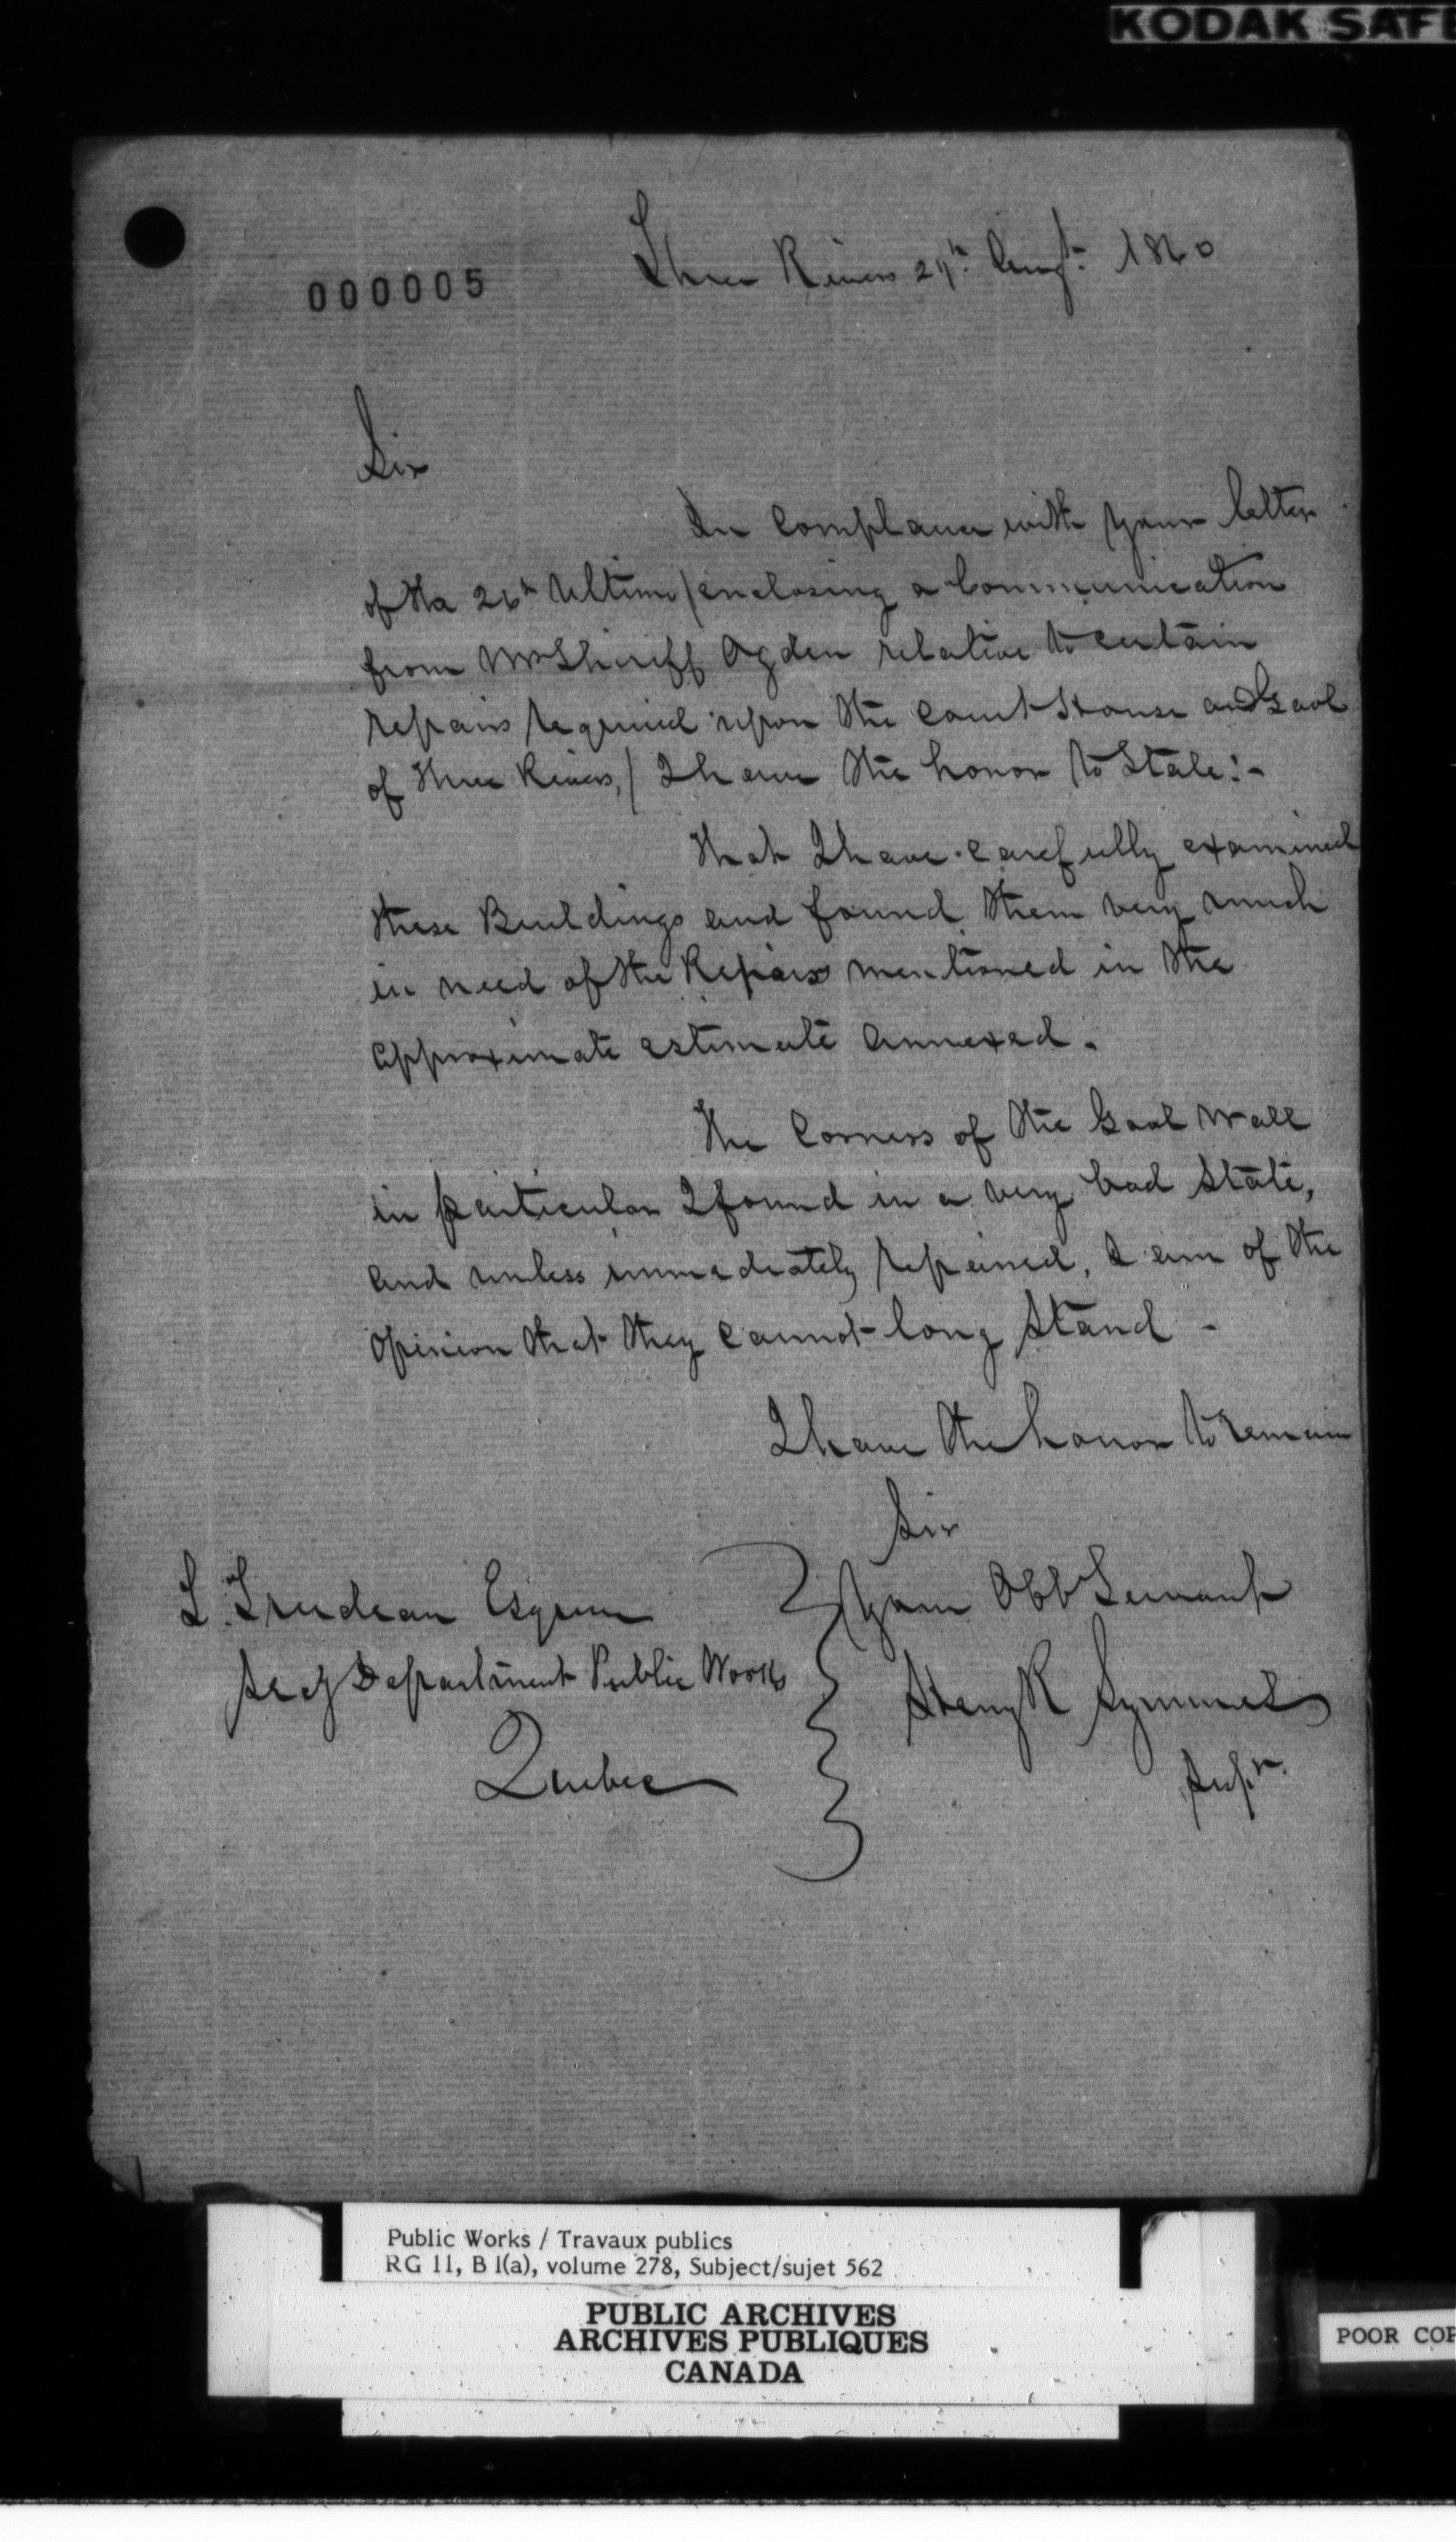 KODAK SAFE
000005
Three Rivers 24th Augt. 1860
Sir
In Complance with your letter
of the 26th Ultimo / enclosing a Communication
from Mr Sheriff Ogden relative to certain
repairs required upon the Court House and Gaol
of Three Rivers, / I have the honor to State:-
That I have carefully examined
these Buildings and found them very much
in need of the Repairs mentioned in the
approximate estimate annexed.
The Corners of the Gaol Wall
in particular I found in a very bad state,
and unless immediately repaired, I am of the
opinion that they cannot long stand -
I have the honor to remain
Sir
Your Obt Servant
T. Trudeau Esquire
Secy Department Public Works
Henry R Symmes
Quebec
Supt.
Public Works / Travaux publics
RG 11, B 1(a), volume 278, Subject/sujet 562
PUBLIC ARCHIVES
ARCHIVES PUBLIQUES
CANADA
POOR COP